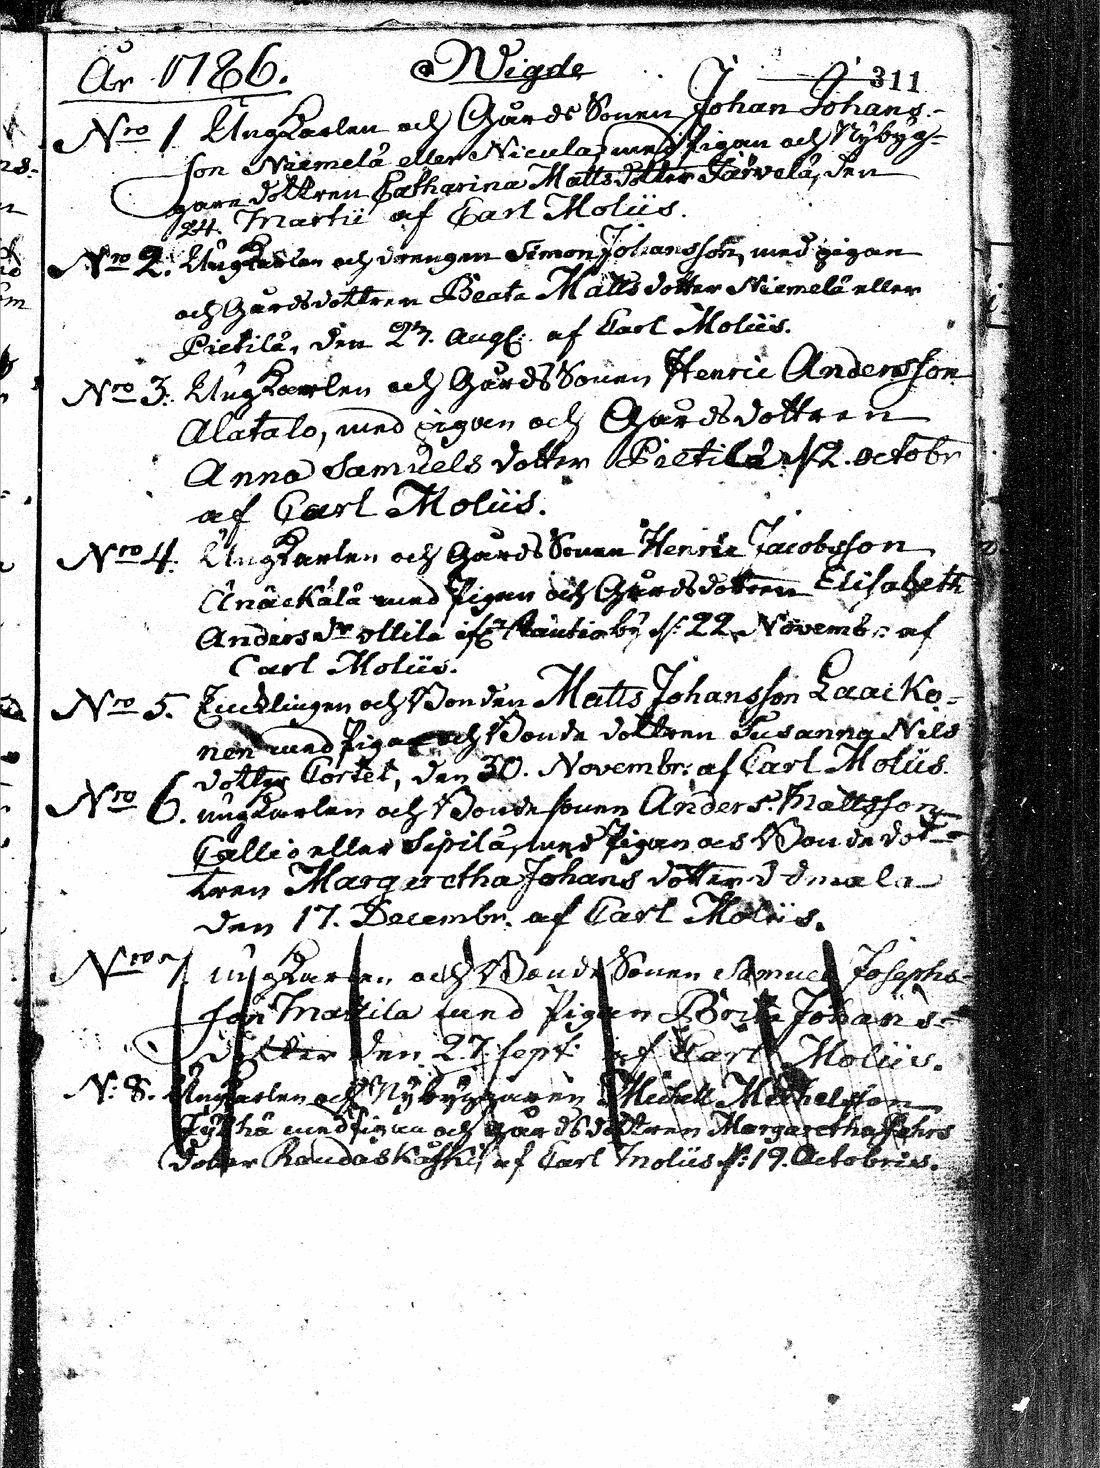 År 1786. Wigde 311
Nro 1 Ungkarlen och Gårds Sonen Johan Johans-
son Niemelä eller Nicula, med Pigan och Nybyg-
gare dottren Catharina Matts dotter Järvelä, den
24. Martii af Carl Moliis.
Nro 2. Ungkarlen och drengen Simon Johansson, med pigan
och Gårdsdottren Beata Matts dotter Niemelä eller
Pietilä, den 27. Aug. af Carl Moliis.
Nro 3. Ungkarlen och Gårds Sonen Henric Andersson
Alatalo, med pigan och Gårdsdottren
Anna Samuels dotter Pietilä d. 2. octobr
af Carl Moliis.
Nro 4. Ungkarlen och Gårds Sonen Henric Jacobsson
med Pigan och Gårdsdottren Elisabeth
Anders dr Ollila ifr. Rautio by d. 22. Novembr. af
Carl Moliis.
Nro 5. Enklingen och Bonden Matts Johansson Laacko-
nen med Pigan och Bonde dottren Susanna Nils
dotter Cortet, den 30. Novembr. af Carl Moliis.
Nro 6. ungkarlen och Bondesonen Anders Mattsson
Callio eller Sipilä, med Pigan och Bonde dot-
tren Margaretha Johans dotter
den 17. Decembr. af Carl Moliis.
Nro 7. ungkarlen och Bonde Sonen Samuel Josephs-
son Mattila med Pigan Brita Johans-
dotter den 27. sept. af Carl Moliis.
N: 8. Ungkarlen och Nybyggaren Michell Michelsson
med pigan och Gårdsdottren Margaretha Johans
dotter Raudaskåski, af Carl Moliis d: 19. Octobris.